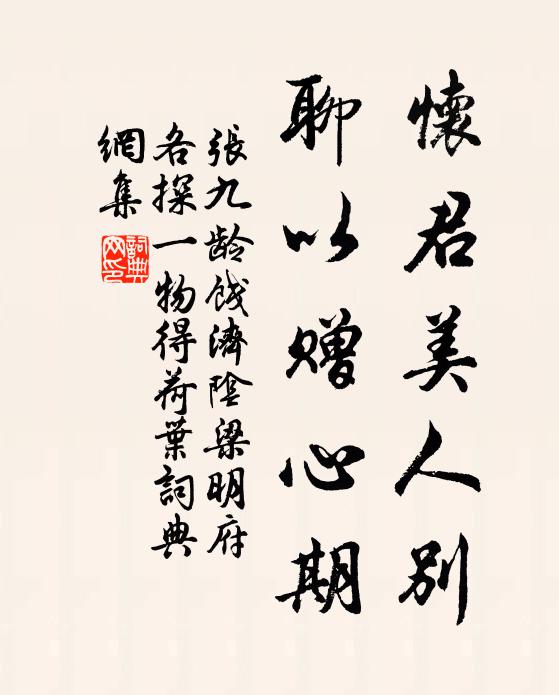 懷君美人別
聊以贈心期
張九齡餞濟陰梁明府
各探一物得荷葉詞典
網集
詞典網印